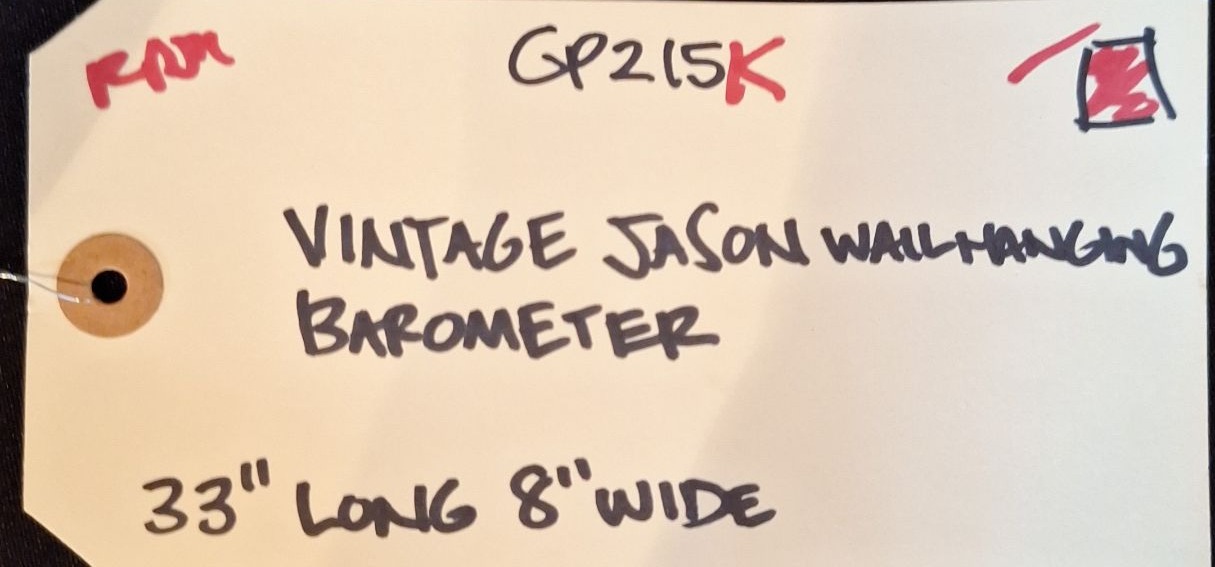 GP215K
VINTAGE JASON WALLHANGING
BAROMETER
33" LONG 8" WIDE